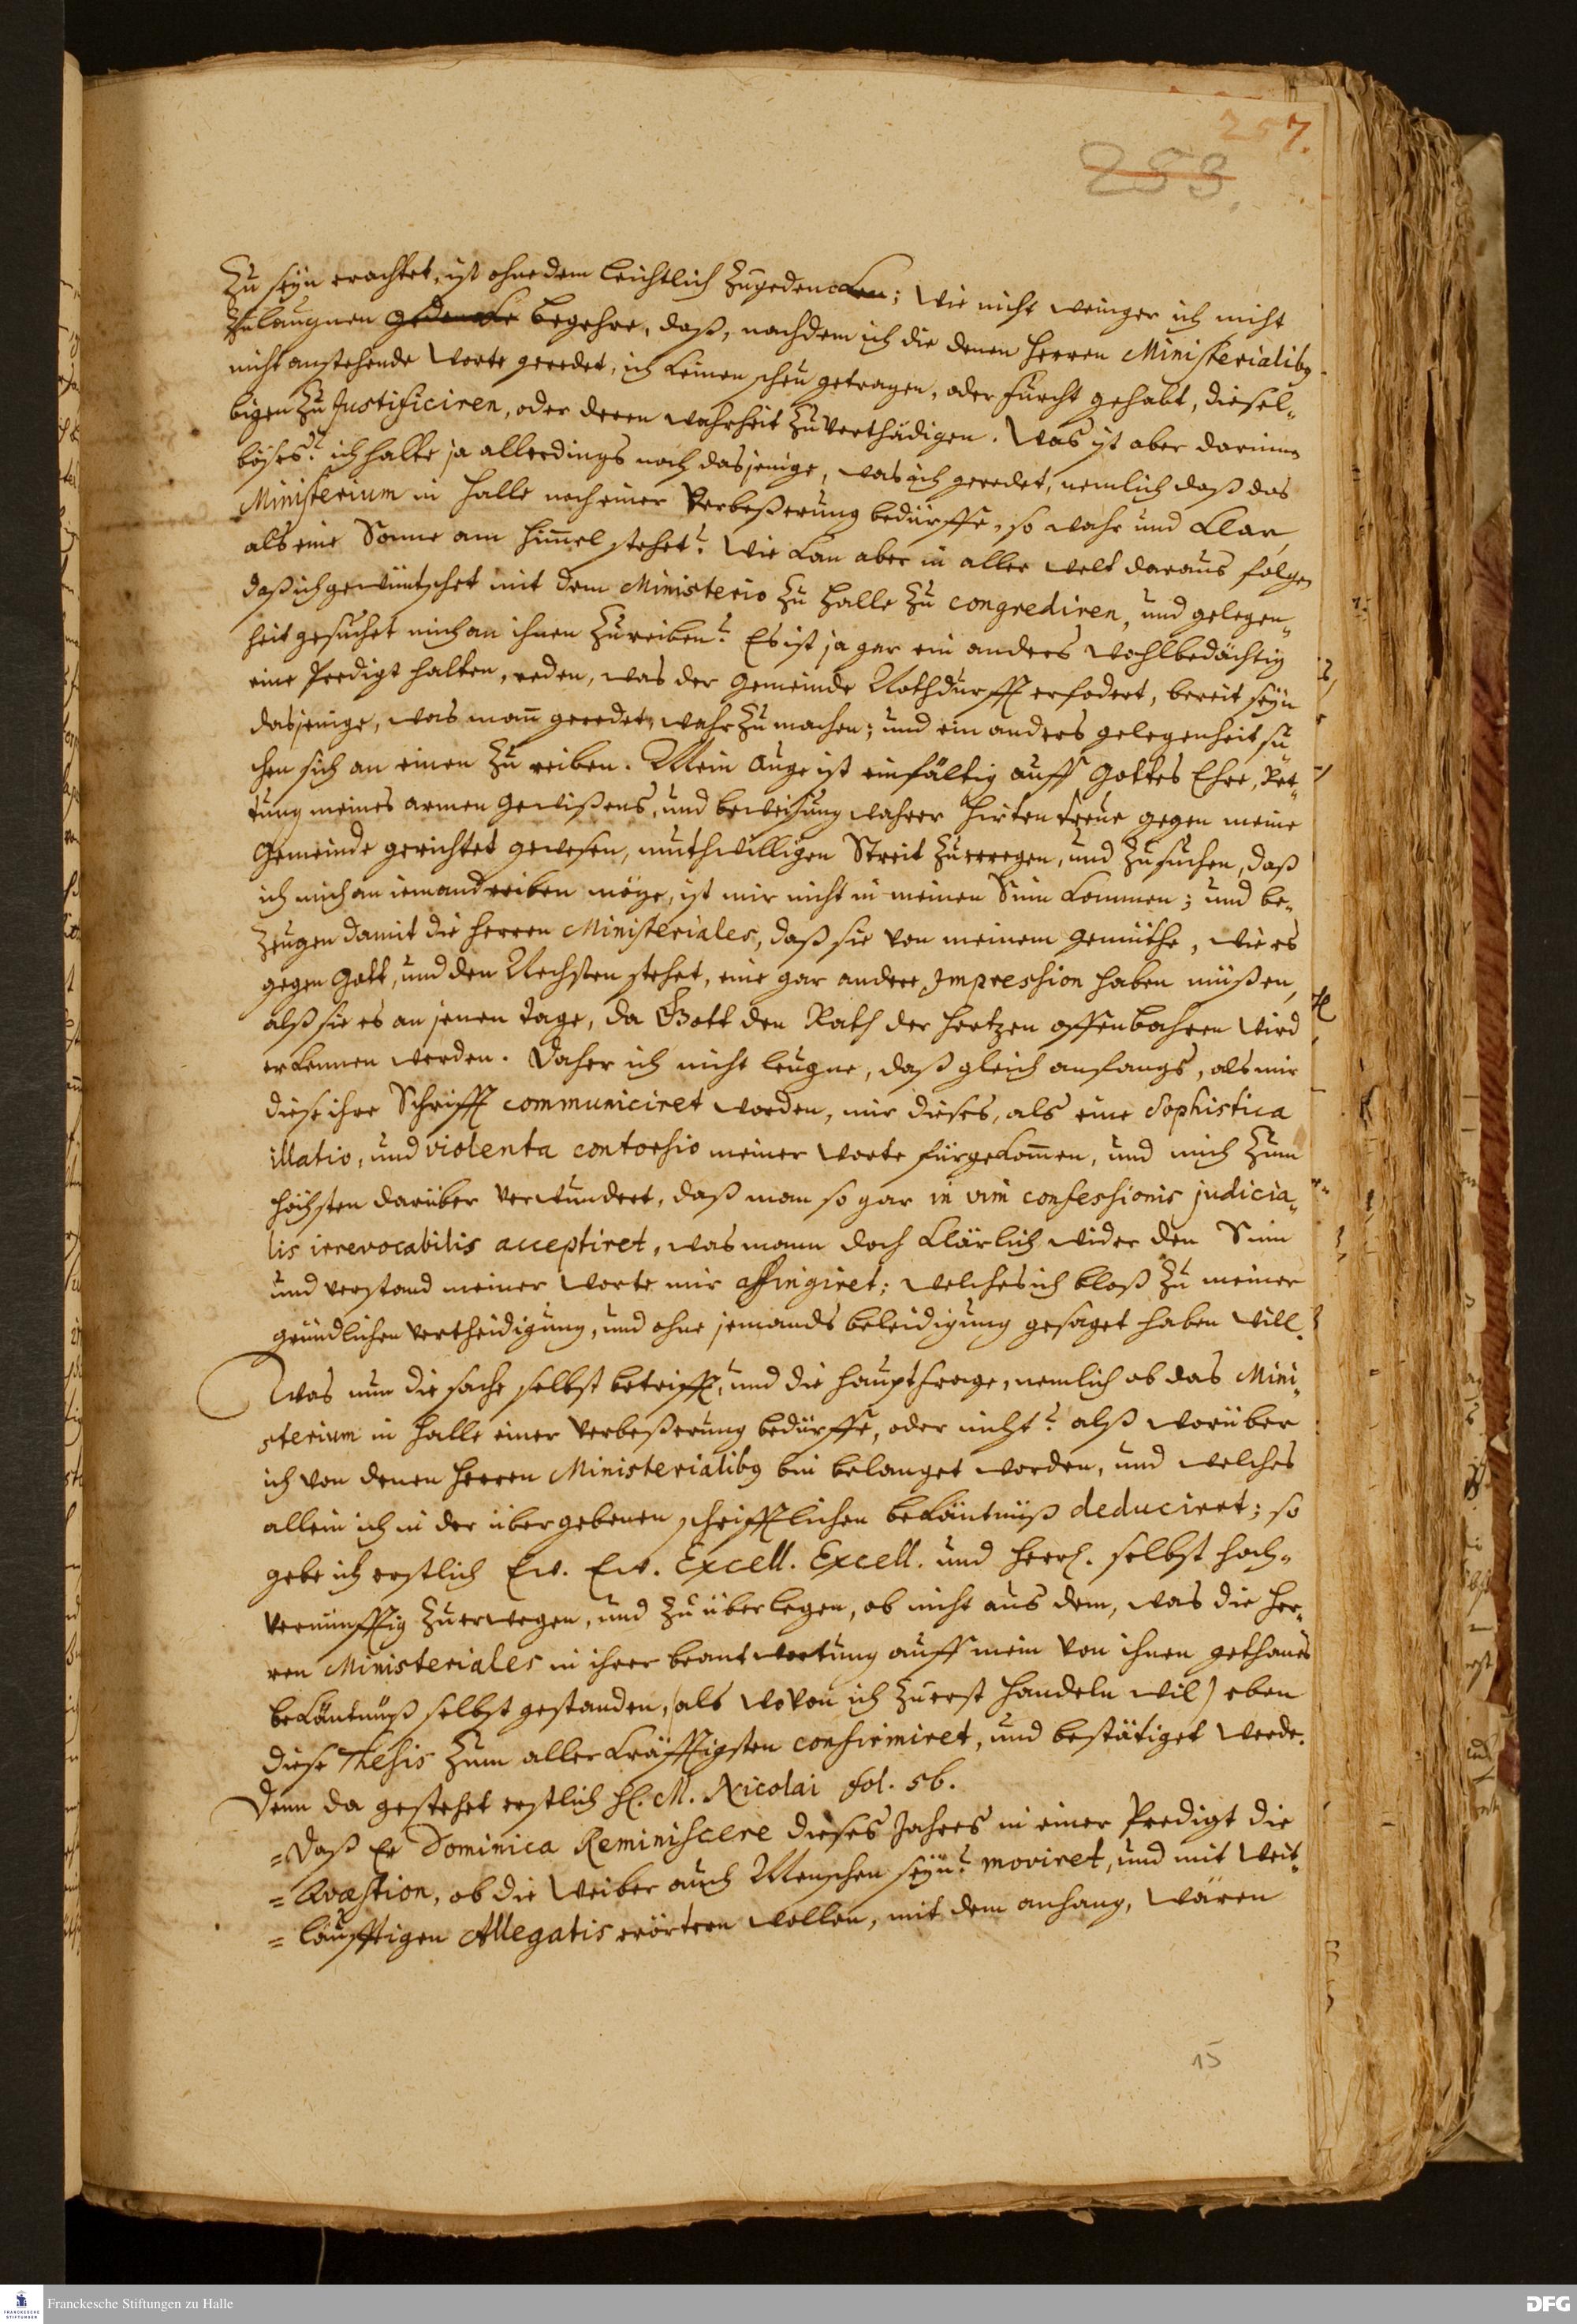 257.
253.
Zu seyn erachtet, ist ohne dem leichtlich zugedencken; Wie nicht weniger ich nicht
zulaugnen gedencke begehre, daß, nachdem ich die denen Herren Ministerialibus
nicht anstehende Worte geredet, ich keinen scheu getragen, oder furcht gehabt, diesel-
bigen zu Justificiren, oder deren wahrheit zuverthädigen. Was ist aber darinne
böses? ich halte ja allerdings noch dasjenige, was ich geredet, nemlich daß das
Ministerium in Halle noch einer Verbeßerung bedürffe, so wahr und klar,
als eine Sonne am Himmel stehet? Wie kan aber in aller welt daraus folgen
daß ich gewüntschet mit dem Ministerio zu Halle zu congrediren, und gelegen-
heit gesuchet mich an ihnen zureiben? Es ist ja gar ein anders wohlbedächtig
eine Predigt halten, reden, was der Gemeinde Nothdurfft erfodert, bereit seyn
dasjenige, was man geredet, wahr zumachen; und ein anders gelegenheit su-
chen sich an einen zu reiben. Mein Auge ist einfältig auff Gottes Ehre, Ret-
tung meines armen Gewißens, und beweisung wahrer Hirten treue gegen meine
Gemeinde gerichtet gewesen, muthwilligen Streit zuerregen, und zusuchen, daß
ich mich an iemand reiben möge, ist mir nicht in meinen Sinn kommen; und be-
zeugen damit die Herren Ministeriales, daß sie von meinem gemüthe, wie es
gegen Gott, und den Nechsten stehet, eine gar andere Impression haben müßen,
alß sie es an jenen tage, da Gott den Rath der Hertzen offenbahren wird
erkennen werden. Daher ich nicht leugne, daß gleich anfangs, als mir
diese ihre Schrifft communiciret worden, mir dieses, als eine Sophistica
illatio, und violenta contorsio meiner Worte fürgekommen, und mich zum
höchsten darüber verwundert, daß man so gar in vim confessionis judicia-
lis irrevocabilis acceptiret, was mann doch klärlich wider den Sinn
und verstand meiner Worte mir affingiret; welches ich bloß zu meiner
gründlichen vertheidigung, und ohne jemands beleidigung gesaget haben will.
Was nun die sache selbst betrifft, und die hauptfrage, nemlich ob das Mini-
sterium in Halle einer Verbeßerung bedürffe, oder nicht? alß worüber
ich von denen Herren Ministerialibus bin belanget worden, und welches
allein ich in der übergebenen schrifftlichen bekäntnüß deduciret; so
gebe ich erstlich Ew. Ew. Excell. Excell. und Herrl. selbst hoch-
vernünfftig zuerwegen, und zu überlegen, ob nicht aus dem, was die Her-
ren Ministeriales in ihrer beantwortung auff mein von ihnen gethanes
bekäntnüß selbst gestanden, (als wovon ich zuerst handeln wil) eben
diese Thesis zum aller kräfftigsten confirmiret, und bestätiget werde.
Denn da gestehet erstlich H. M. Nicolai fol. 5b.
= Daß Er Dominica Reminiscere dieses Jahres in einer Predigt die
= Quæstion, ob die Weiber auch Menschen seyn? moviret, und mit weit-
= läufftigen Allegatis erörtern wollen, mit dem anhang, wären
15
Franckesche Stiftungen zu Halle
DFG